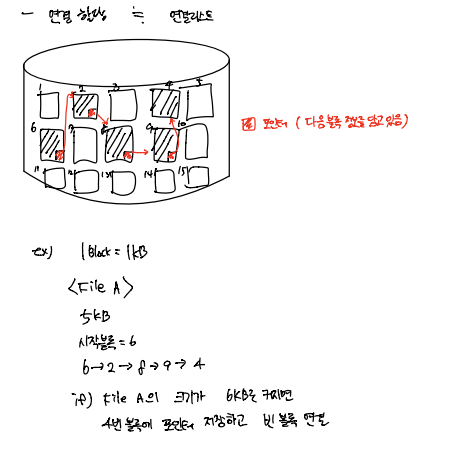 - 연결 할당 ≒ 연결리스트
1 2 3 4 5
6 7 8 9 10
11 12 13 14 15
포인터 ( 다음블록 정보를 담고 있음)
ex) 1 Block = 1kB
<File A>
5kB
시작블록 = 6
6→2→8→9→4
if) File A의 크기가 6kB로 커지면
4번 블록에 포인터 저장하고 빈 블록 연결